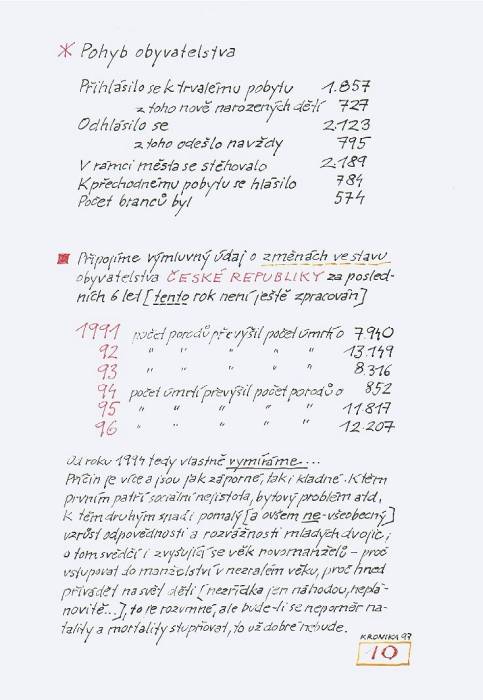 * Pohyb obyvatelstva
Přihlásilo se k trvalému pobytu 1.857
z toho nově narozených dětí 727
Odhlásilo se 2.123
z toho odešlo navždy 795
V rámci města se stěhovalo 2.189
K přechodnému pobytu se hlásilo 784
Počet branců byl 574
Připojíme výmluvný údaj o změnách ve stavu
obyvatelstva ČESKÉ REPUBLIKY za posled-
ních 6 let [tento rok není ještě zpracován]
1991 počet porodů převýšil počet úmrtí o 7.940
92 " " " " " 13.149
93 " " " " " 8.316
94 počet úmrtí převýšil počet porodů o 852
95 " " " " " 11.817
96 " " " " " 12.207
Od roku 1994 tedy vlastně vymíráme....
Příčin je více a jsou jak záporné, tak i kladné. K těm
prvním patří sociální nejistota, bytový problém atd.
K těm druhým snad i pomalý [a ovšem ne-všeobecný]
vzrůst odpovědnosti a rozvážnosti mladých dvojic,
o tom svědčí i zvyšující se věk novomanželů - proč
vstupovat do manželství v nezralém věku, proč hned
přivádět na svět děti [nezřídka jen náhodou, neplá-
novitě...], to je rozumné, ale bude-li se nepoměr na-
tality a mortality stupňovat, to už dobré nebude.
KRONIKA 97
10